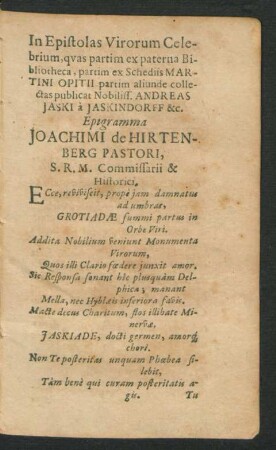 In Epistolas Virorum Cele-
brium, qvas partim ex paterna Bi-
bliotheca, partim ex Schediis MAR-
TINI OPITII partim aliunde colle-
ctas publicat Nobiliss. ANDREAS
JASKI à JASKINDORFF &c.
Epigramma
JOACHIMI de HIRTEN-
BERG PASTORI,
S. R. M. Commissarii &
Historici.
ECce, reviviscit, propè jam damnatus
ad umbras,
GROTIADÆ summi partus in
Orbe Viri.
Addita Nobilium veniunt Monumenta
Virorum,
Quos illi Clario fœdere junxit amor.
Sic Responsa sonant hîc plusquàm Del-
phica; manant
Mella, nec Hyblæis inferiora favis.
Macte decus Charitum, flos illibate Mi-
nervæ,
JASKIADE, docti germen, amorq;
chori.
Non Te posteritas unquam Phœbea si-
lebit,
Tàm benè qui curam posteritatis a-
gis.
Tu